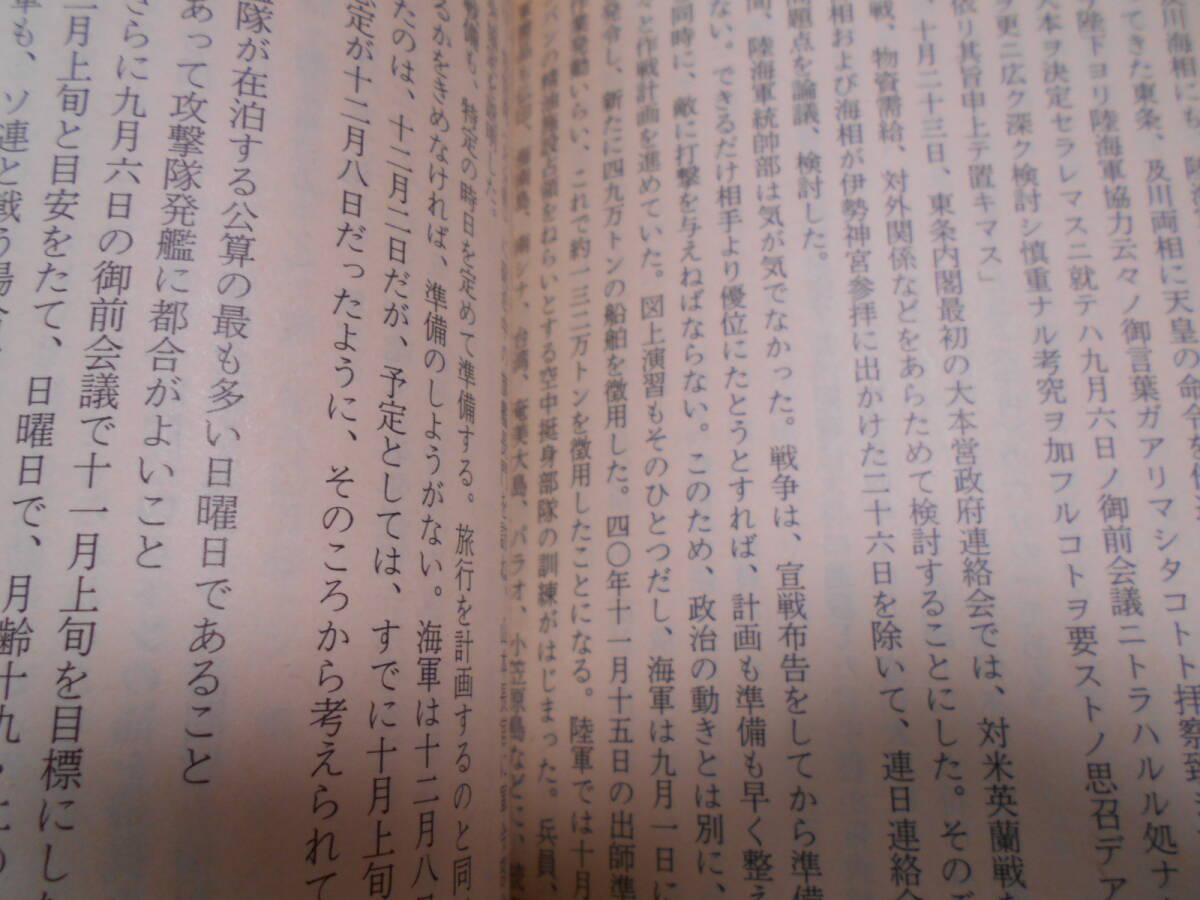 及川海相にも、
ってきた東条、及川両相に天皇の命令を
陸下ヨリ陸海軍協力云々ノ御言葉ガアリマシタコト拝察致
大本ヲ決定セラレマスニ就テハ九月六日ノ御前会議ニトラハルル処ナ
ヲ更ニ広ク深ク検討シ慎重ナル考究ヲ加フルコトヲ要ストノ思召デア
依リ其旨申上テ置キマス」
、十月二十三日、東条内閣最初の大本営政府連絡会では、対米英蘭戦
戦、物資需給、対外関係などをあらためて検討することにした。その
相および海相が伊勢神宮参拝に出かけた二十六日を除いて、連日連絡会
問題点を論議、検討した。
間、陸海軍統帥部は気が気でなかった。戦争は、宣戦布告をしてから準備
ない。できるだけ相手より優位にたとうとすれば、計画も準備も早く整え
同時に、敵に打撃を与えねばならない。このため、政治の動きとは別に、
々と作戦計画を進めていた。図上演習もそのひとつだし、海軍は九月一日に
発令し、新たに四九万トンの船舶を徴用した。四〇年十一月十五日の出師準
作業発動いらい、これで約一三二万トンを徴用したことになる。陸軍では十月
占領をねらいとする空中挺身部隊の訓練がはじまった。兵員、
南シナ、台湾、奄美大島、パラオ、小笠原島などに、
も、特定の時日を定めて準備する。旅行を計画するのと同
るかをきめなければ、準備のしようがない。海軍は十二月八
たのは、十二月二日だが、予定としては、すでに十月上旬
定が十二月八日だったように、そのころから考えられて
隊が在泊する公算の最も多い日曜日であること
あって攻撃隊発艦に都合がよいこと
さらに九月六日の御前会議で十一月上旬を目標にし
月上旬と目安をたて、日曜日で、月齢十九・
も、ソ連と戦う場